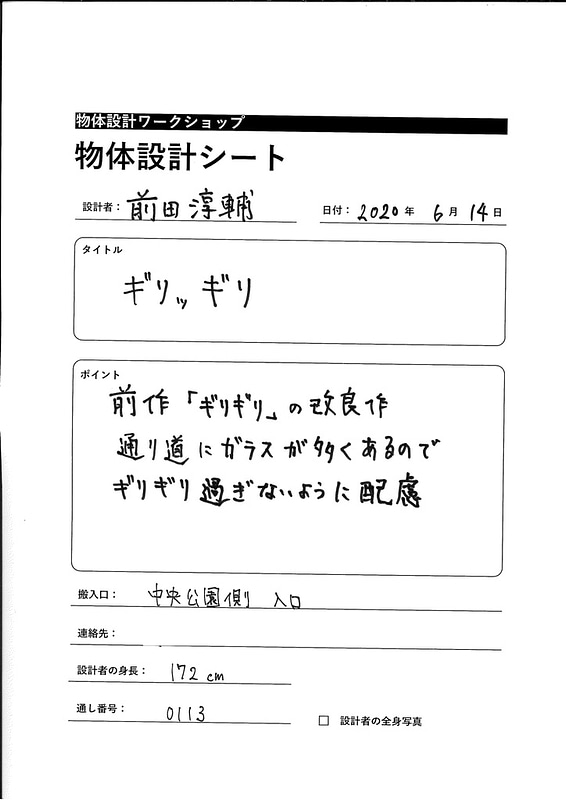 物体設計ワークショップ
物体設計シート
設計者： 前田淳輔 日付： 2020 年 6 月 14 日
タイトル
ギリッギリ
ポイント
前作「ギリギリ」の改良作
通り道にガラスが多くあるので
ギリギリ過ぎないように配慮
搬入口： 中央公園側 入口
連絡先：
設計者の身長： 172 cm
通し番号： 0113 □ 設計者の全身写真